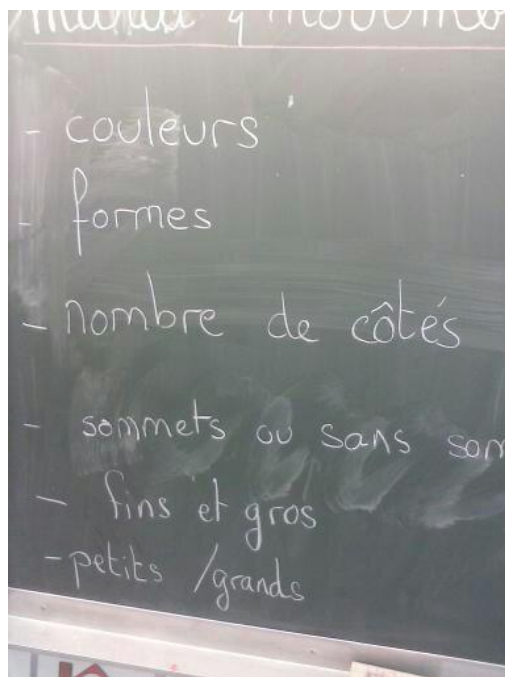 - couleurs
- formes
- nombre de côtés
- sommets ou sans som
- fins et gros
- petits / grands